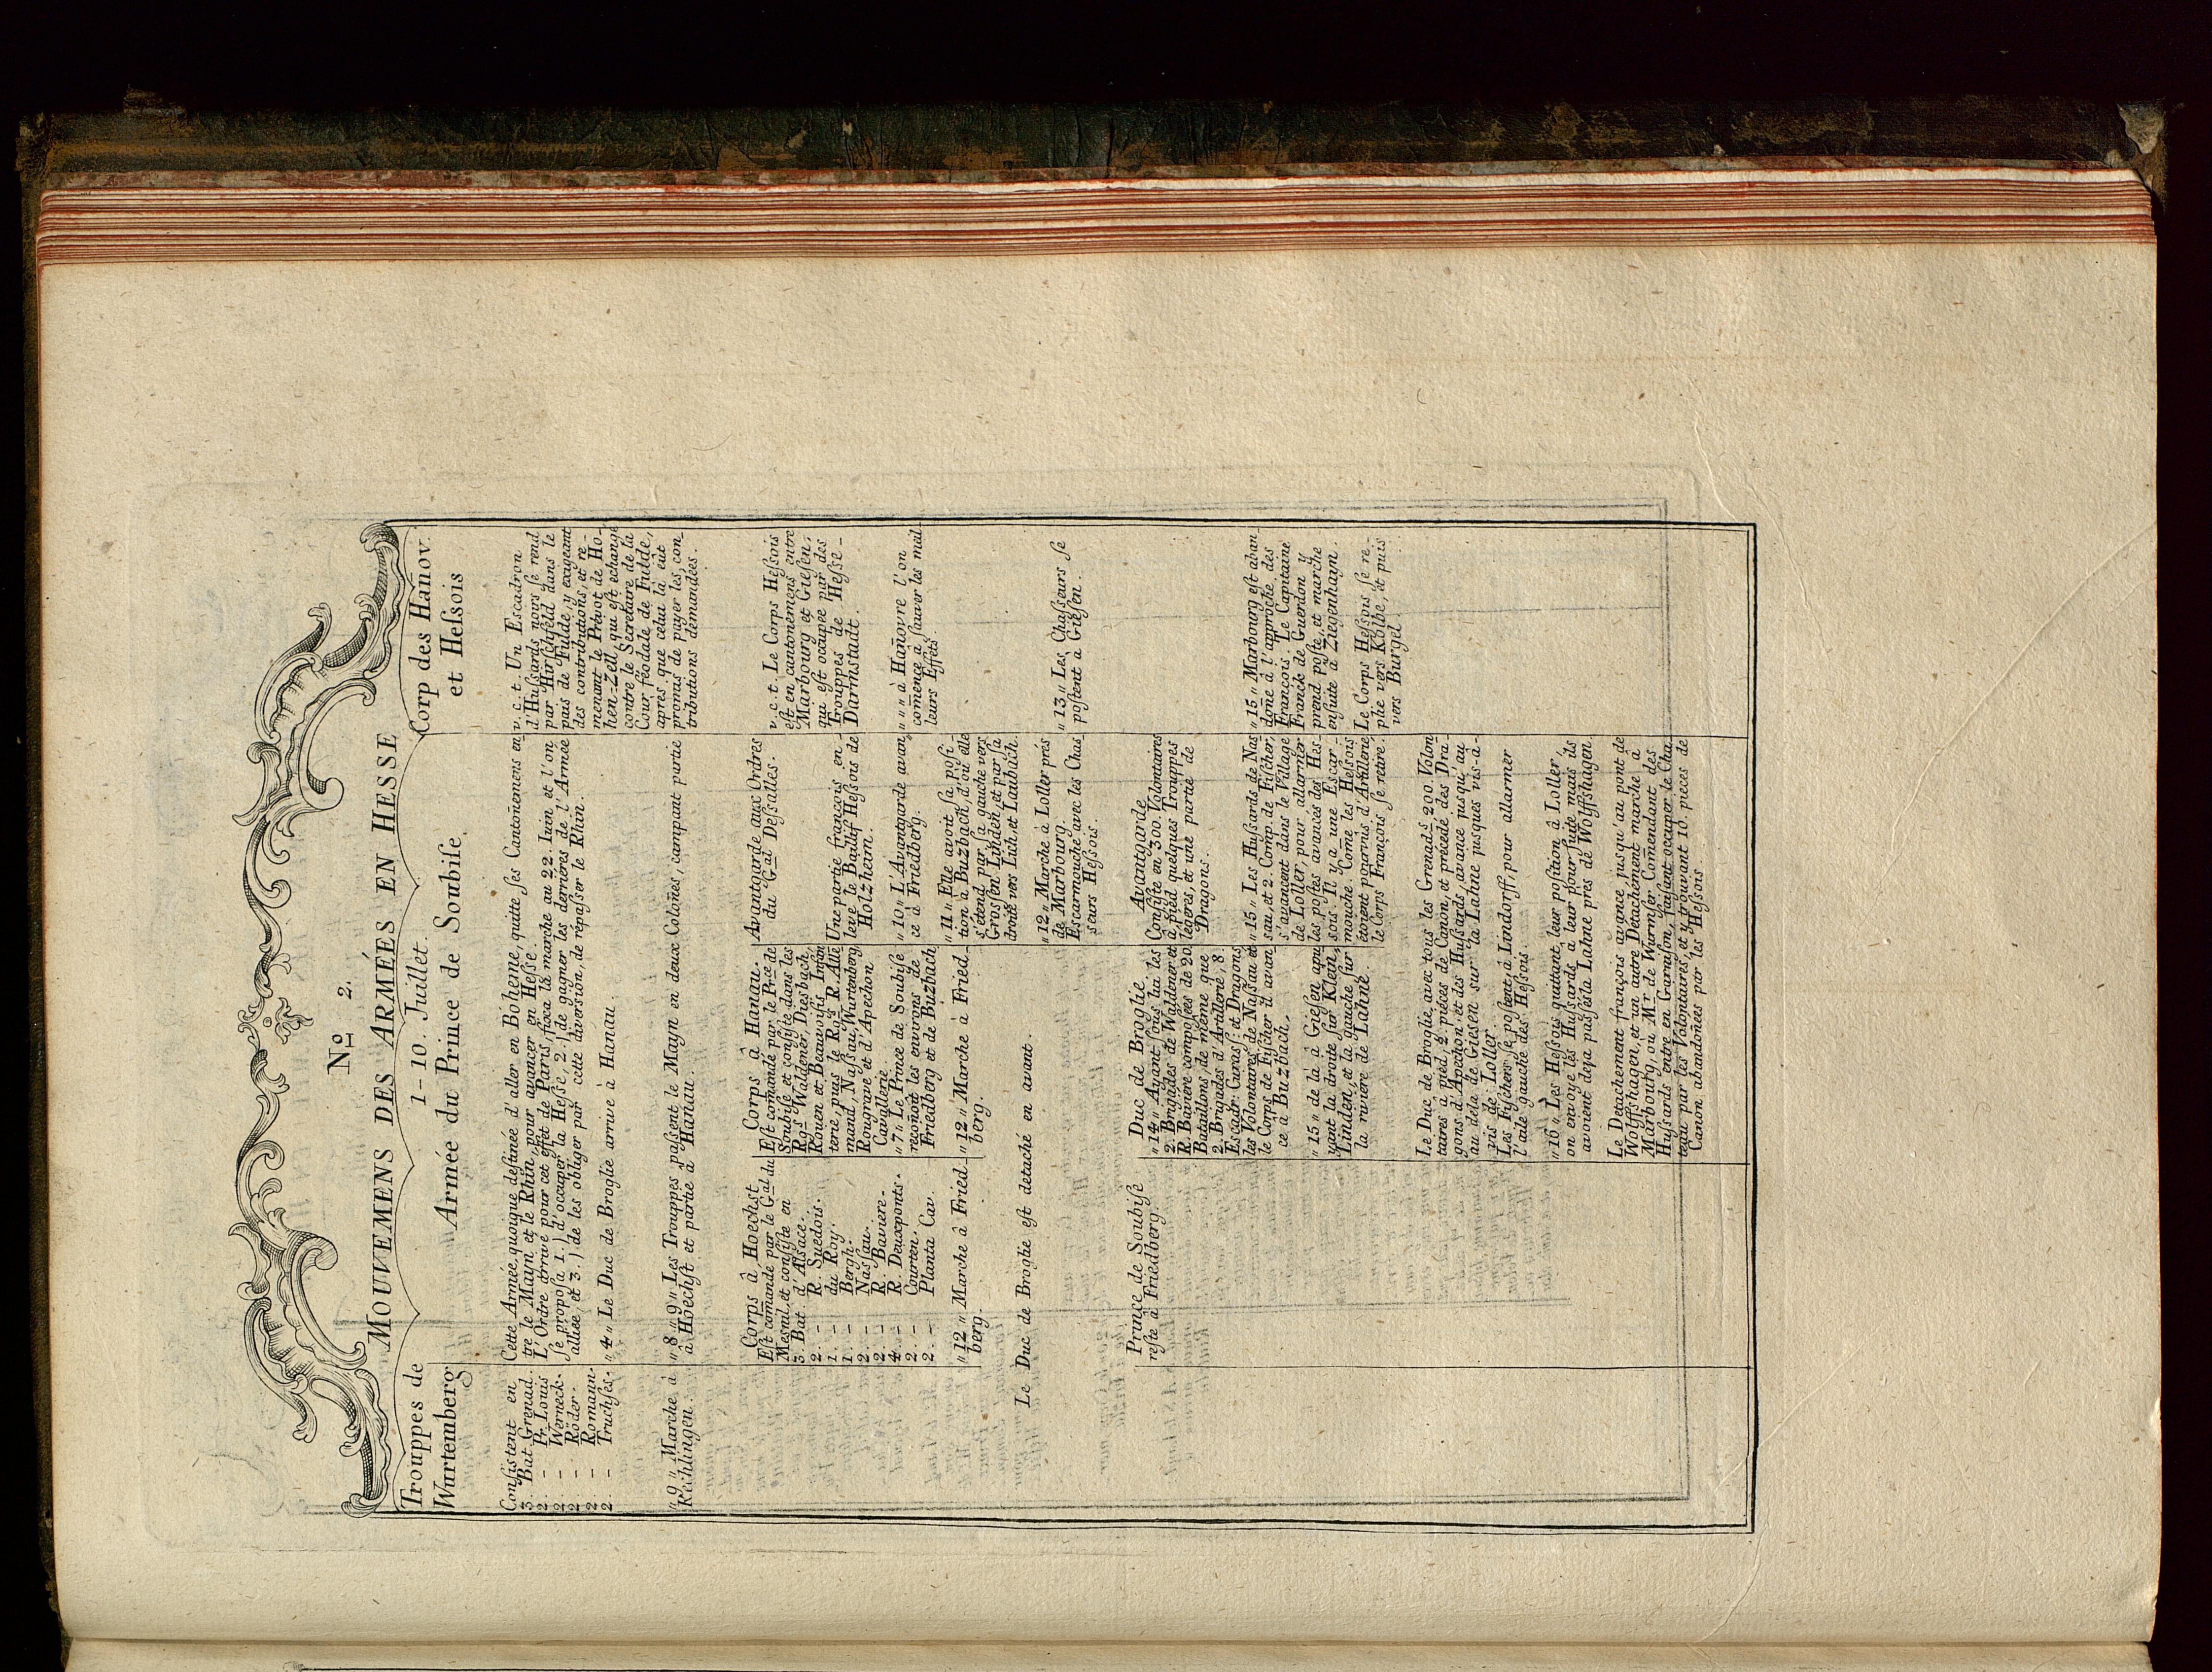 No 2.
MOUVEMENS DES ARMÉES EN HESSE
1-10. Juillet.
Trouppes de
Wurtemberg
Consistent en
3. Bat. Grenad.
2. - Pr. Louis
2. - Werneck.
2. - Röder.
2. - Romann.
2. - Truchses.
„9„ Marche à
Kechlingen.
Armée du Prince de Soubise
Cette Armée, quoique destinée d'aller en Boheme, quitte ses Cantoñemens en
tre le Mayn et le Rhin, pour avancer en Hesse.
L'Ordre arrive pour cet effet de Paris, fixa la marche au 22. Iuin, et l'on
se proposa 1.) d'occuper la Hesse, 2.) de gagner les derrieres de l'Armée
alliée, et 3.) de les obliger par cette diversion, de répasser le Rhin.
„4„ Le Duc de Broglie arrive à Hanau.
„8„9„ Les Trouppes passent le Mayn en deux Coloñes, campant partie
à Hoechst et partie à Hanau.
Corps à Hoechst
Est comandé par le Gal du
Mesnil, et consiste en
3. Bat. d'Alsace.
2. - R. Suedois.
1. - du Roy.
1. - Bergh.
2. - Nassau.
2. - R. Baviere.
4. - R. Deuxponts.
2. - Courten.
2. - Planta Cav.
„12„ Marche à Fried
berg.
Corps à Hanau.
Est comandé par le Prce de
Soubise et consiste dans les
Rgs Waldener, Diesbach,
Rouen et Beauvoisis Infan
terie, puis le Rgs R. Alle
mand, Nassau, Wurtenberg
Rougrave et d'Apechon
Cavallerie
„7„ Le Prince de Soubise
recoñoit les environs de
Friedberg et de Buzbach
„12„ Marche à Fried
berg.
Avantgarde aux Ordres
du Gal Dessalles.
Une partie françois en-
leve le Baillif Hessois de
Holzheim.
„10„ L'Avantgarde avan
ce à Friedberg.
„11„ Elle avoit sa posi-
tion à Buzbach, d'où elle
s'étend par sa gauche vers
Grossen Linden, et par sa
droite vers Lich, et Laubach.
„12„ Marche à Loller prés
de Marbourg.
Escarmouche avec les Chas
seurs Hessois.
Le Duc de Broglie est detaché en avant.
Prince de Soubise
reste à Friedberg.
Duc de Broglie.
„14„ Ayant sous lui les
2. Brigades de Waldener et
R. Baviere composées de 20
Bataillons, de même que
2. Brigades d'Artillerie, 8.
Escadr. Cuirass: et Dragons
les Volontaires de Nassau et
le Corps de Fischer il avan
ce à Buzbach,
„15„ de là à Giesen apu
yant la droite sur Klein
Linden, et la gauche sur
la riviere de Lahne.
Avantgarde
Consiste en 300. Volontaires
à pied quelques Trouppes
legeres, et une partie de
Dragons.
„15„ Les Hussards de Nas
sau, et 2. Comp. de Fischer,
s'avancent dans le Village
de Loller, pour allarmer
les postes avancés des Hes-
sois. Il y a une Escar-
mouche. Come les Hessois
étoient pourvus d'Artillerie
le Corps François se retire.
Le Duc de Broglie, avec tous les Grenads 200. Volon
taires à pied, 2. piéces de Canon, et précédé des Dra-
gons d'Apechon et des Hussards, avance jusqu'au
au dela de Giesen sur la Lahne jusques vis-à-
vis de Loller.
Les Fischers se postent à Lindorff, pour allarmer
l'aile gauche des Hessois.
„16„ Les Hessois quittant leur position à Loller,
on envoye les Hussards à leur poursuite mais ils
avoient deja passés la Lahne pres de Wolffshagen.
Le Detachement françois avance jusqu'au pont de
Wolffshagen, et un autre Detachement marche à
Marbourg, où Mr. de Wurmser Comendant des
Hussards entre en Garnison, faisant occuper le Cha
teau par les Volontaires, et y trouvant 10. pieces de
Canon abandoñées par les Hessois.
Corp des Hañov.
et Hessois
v. c. t. Un Escadron
d'Hussards noirs se rend
par Hirschfeld dans le
païs de Fulde, y exigeant
des contributions, et re-
menant le Prévot de Ho-
hen-Zell, qui est echangé
contre le Secretaire de la
Cour féodale de Fulde,
apres que celui la eut
promis de payer les con
tributions demandées.
v. c. t. Le Corps Hessois
est en cantonemens entre
Marbourg et Giesen,
qui est occupée par des
Trouppes de Hesse-
Darmstadt.
„„„ à Hañovre l'on
comence à sauver les meil
leurs Effets
„13„ Les Chasseurs se
postent à Giesen.
„15„ Marbourg est aban
doñé à l'approche des
François. Le Capitaine
Franck de Guerdon y
prend poste, et marche
ensuite à Ziegenhayn.
Le Corps Hessois se re-
plie vers Kolbe, et puis
vers Burgel.